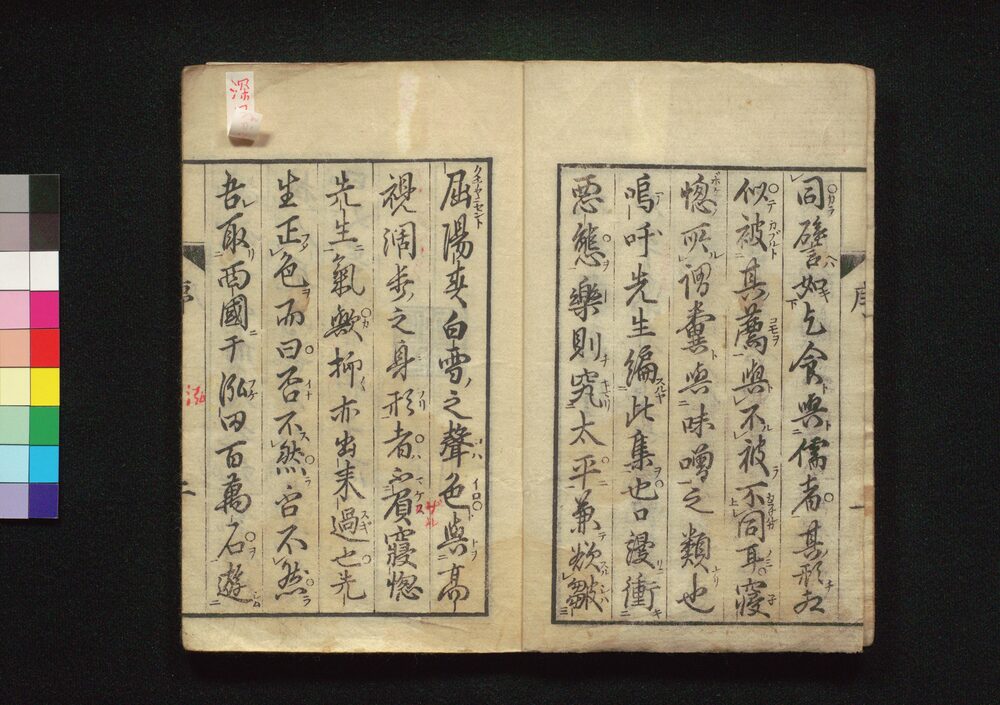 同譬如乞食與儒者其形相
似被其薦與不被不同耳寢
惚所謂糞與味噌之類也
嗚呼先生編此集也口漫衝
惡態樂則究太平兼欲皺
屈陽春白雪之聲色與高
視濶歩之身形者不負寢惚
先生氣歟抑亦出来過也先
生正色而曰否不然否不然
吾取両國于泓田百萬石遊
序
泓
深